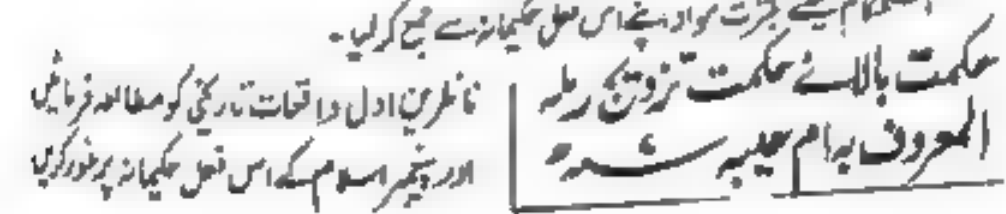 بکثرت مواد اپنے اس فعل حکیمانہ سے جمع کر لیا۔
حکمت بالائے حکمت تزویج رملہ
المعروف بہ ام حبیبہ
ناظرین اول واقعات تاریخی کو مطالعہ فرمائیں
اور پیغمبر اسلام کے اس فعل حکیمانہ پر غور کریں